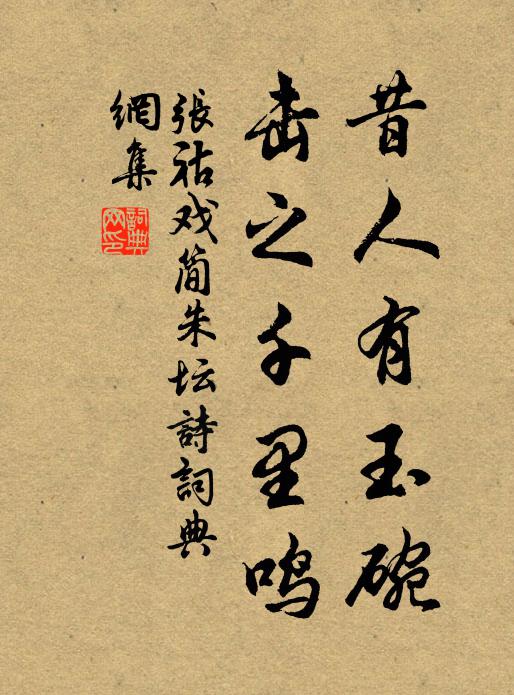 昔人有玉碗
击之千里鸣
張祜戏简朱坛詩詞典
網集
詞典
网印